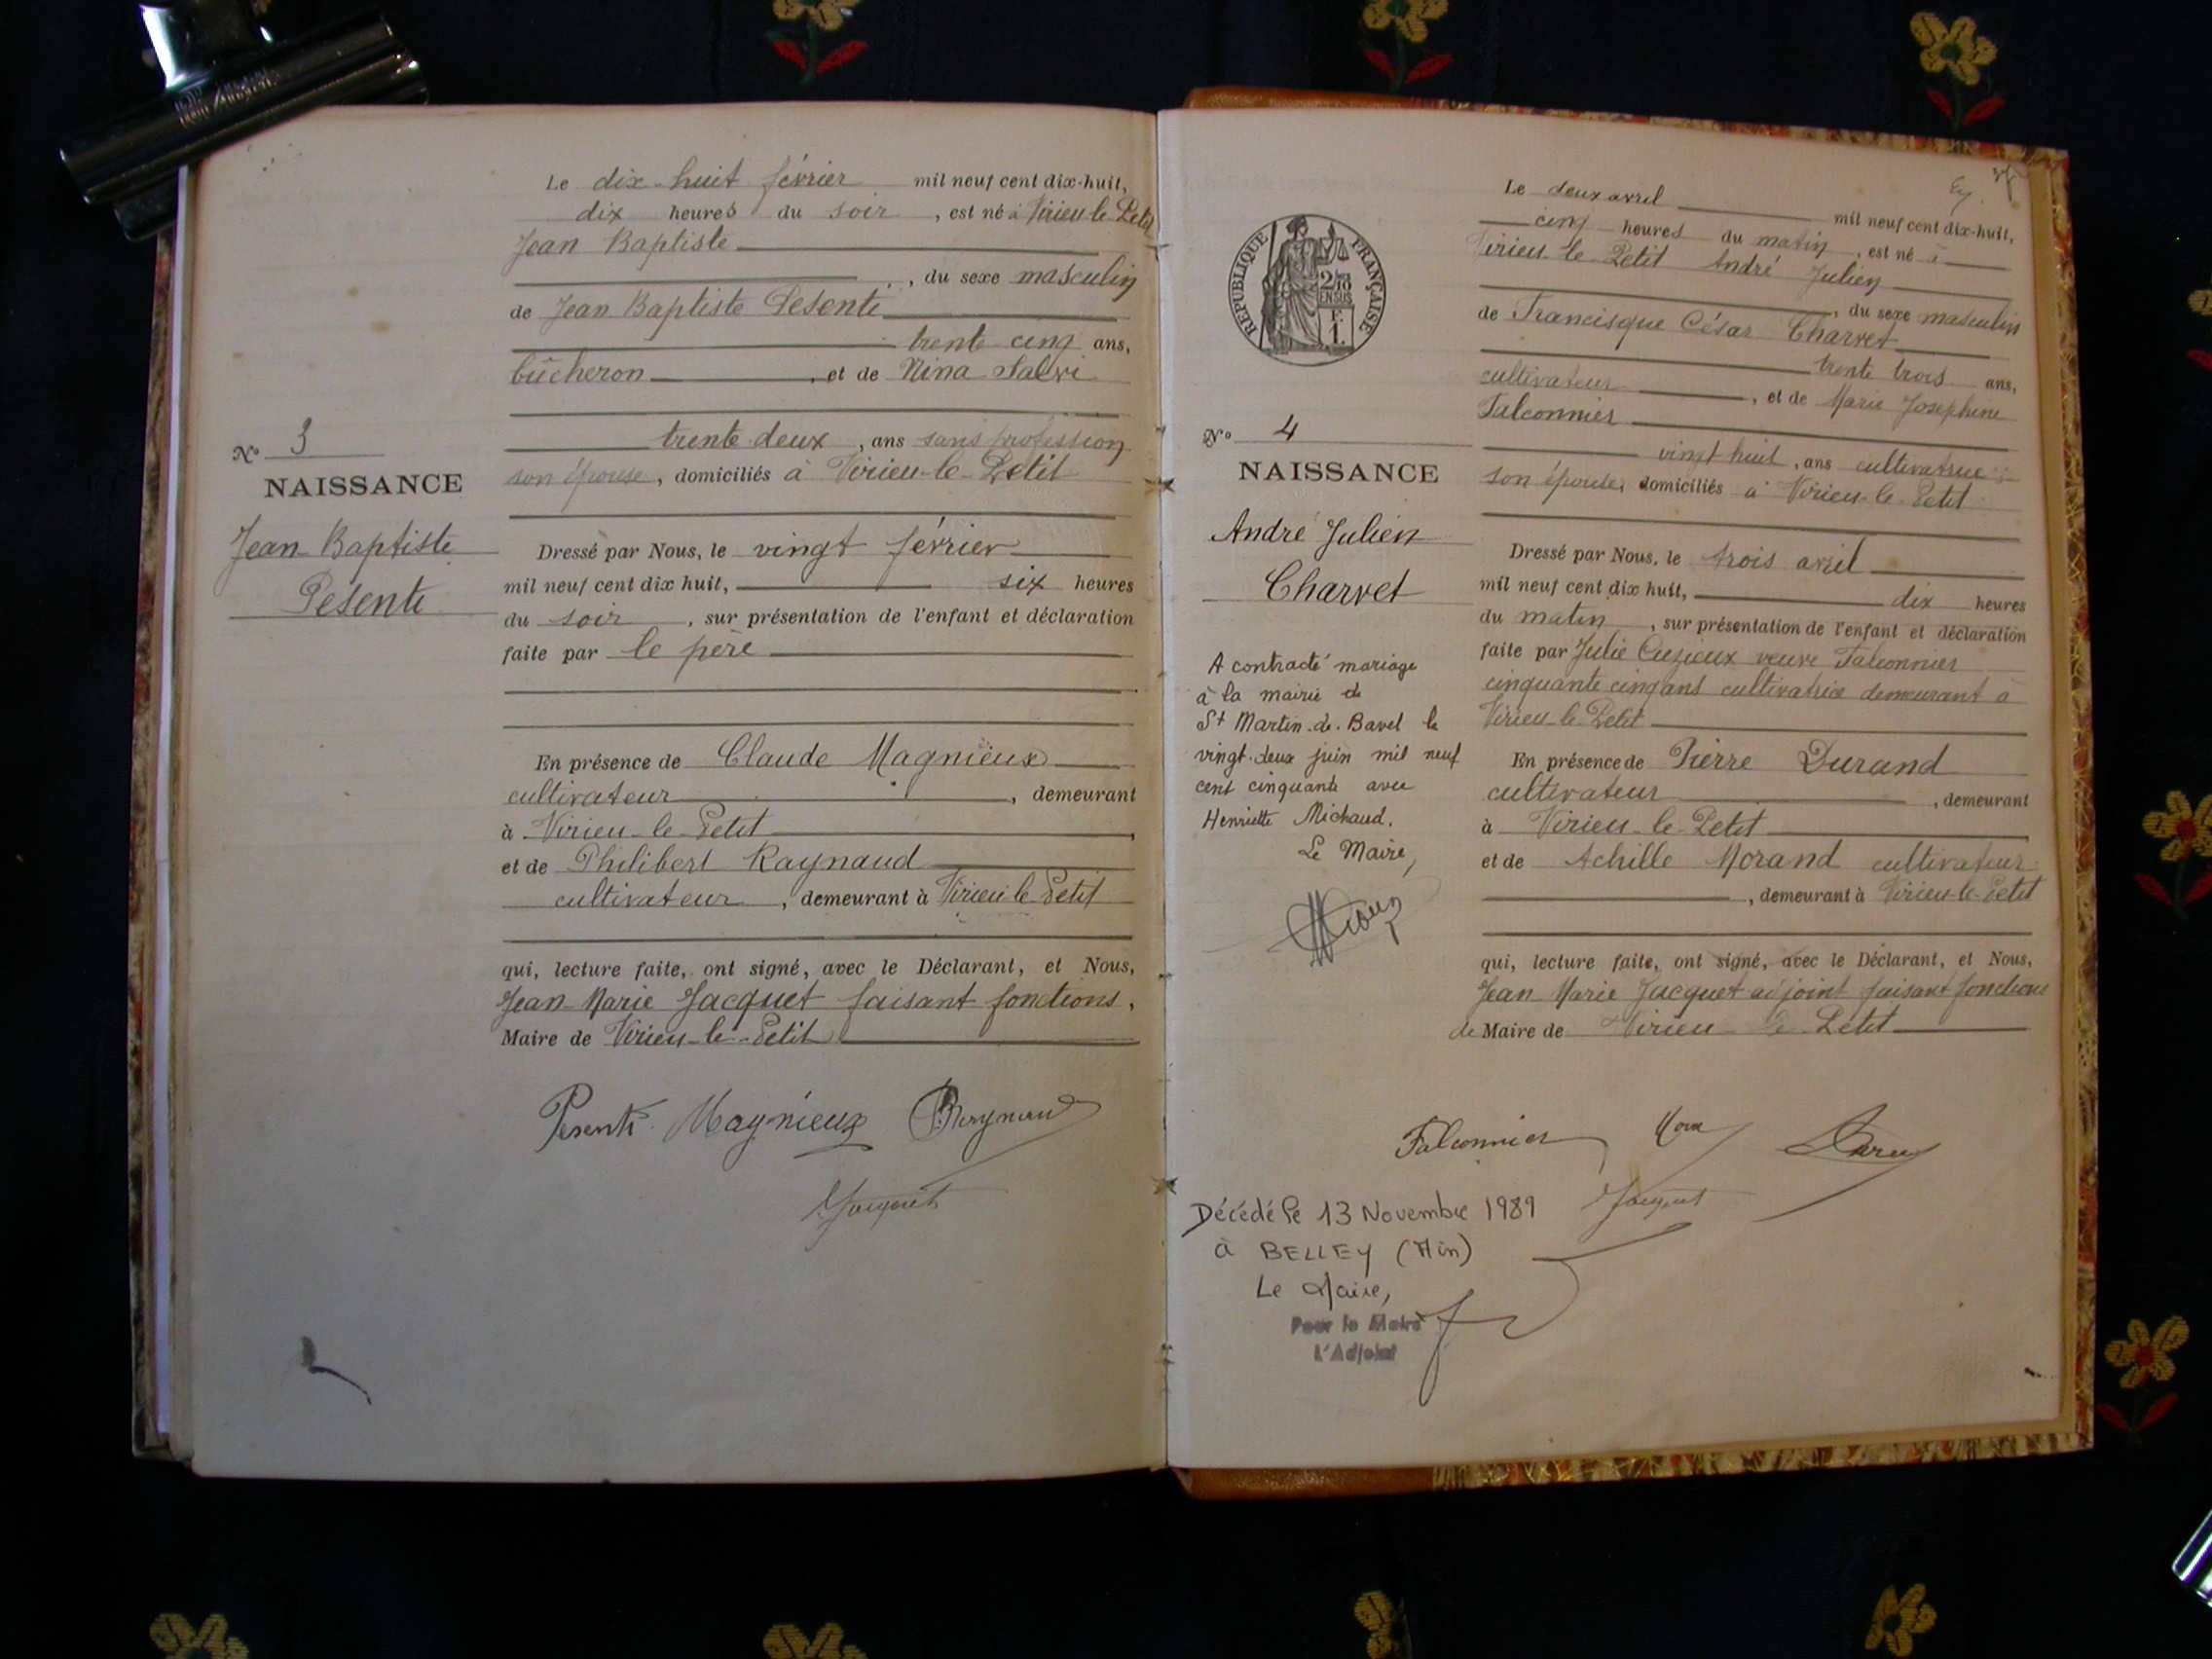 Le dix-huit février mil neuf cent dix-huit,
dix heures du soir, est né à Virieu-le-Petit
Jean Baptiste
, du sexe masculin
de Jean Baptiste Pesenti
trente cinq ans,
bûcheron, et de Nina Salvi
trente-deux, ans sans profession
son épouse, domiciliés à Virieu-le-Petit
N° 3
NAISSANCE
Jean-Baptiste
Pesenti
Dressé par Nous, le vingt février
mil neuf cent dix huit, six heures
du soir, sur présentation de l'enfant et déclaration
faite par le père
En présence de Claude Magnieux
cultivateur, demeurant
à Virieu-le-Petit
et de Philibert Raynaud
cultivateur, demeurant à Virieu le Petit
qui, lecture faite, ont signé, avec le Déclarant, et Nous,
Jean-Marie Jacquet faisant fonctions,
Maire de Virieu-le-Petit
Pesenti Magnieux Raynaud
Jacquet
Le deux avril mil neuf cent dix-huit,
cinq heures du matin, est né à
Virieu-le-Petit André Julien
, du sexe masculin
de Francisque César Charvet
trente trois ans,
cultivateur, et de Marie Josephine
Falconnier
vingt huit, ans cultivatrice
son épouse, domiciliés à Virieu-le-Petit
REPUBLIQUE FRANÇAISE
2/10
EN SUS
F.
1.
N° 4
NAISSANCE
André Julien
Charvet
A contracté mariage
à la mairie de
St Martin-de-Bavel le
vingt-deux juin mil neuf
cent cinquante avec
Henriette Michaud.
Le Maire,
Dressé par Nous, le trois avril
mil neuf cent dix huit, dix heures
du matin, sur présentation de l'enfant et déclaration
faite par Julie Cuzieux veuve Falconnier
cinquante cinq ans cultivatrice demeurant à
Virieu le Petit
En présence de Pierre Durand
cultivateur, demeurant
à Virieu-le-Petit
et de Achille Morand cultivateur
, demeurant à Virieu-le-Petit
qui, lecture faite, ont signé, avec le Déclarant, et Nous,
Jean Marie Jacquet adjoint faisant fonctions
de Maire de Virieu le Petit
Falconnier
Jacquet
Décédé le 13 Novembre 1989
à BELLEY (Ain)
Le Maire,
Pour le Maire
L'Adjoint